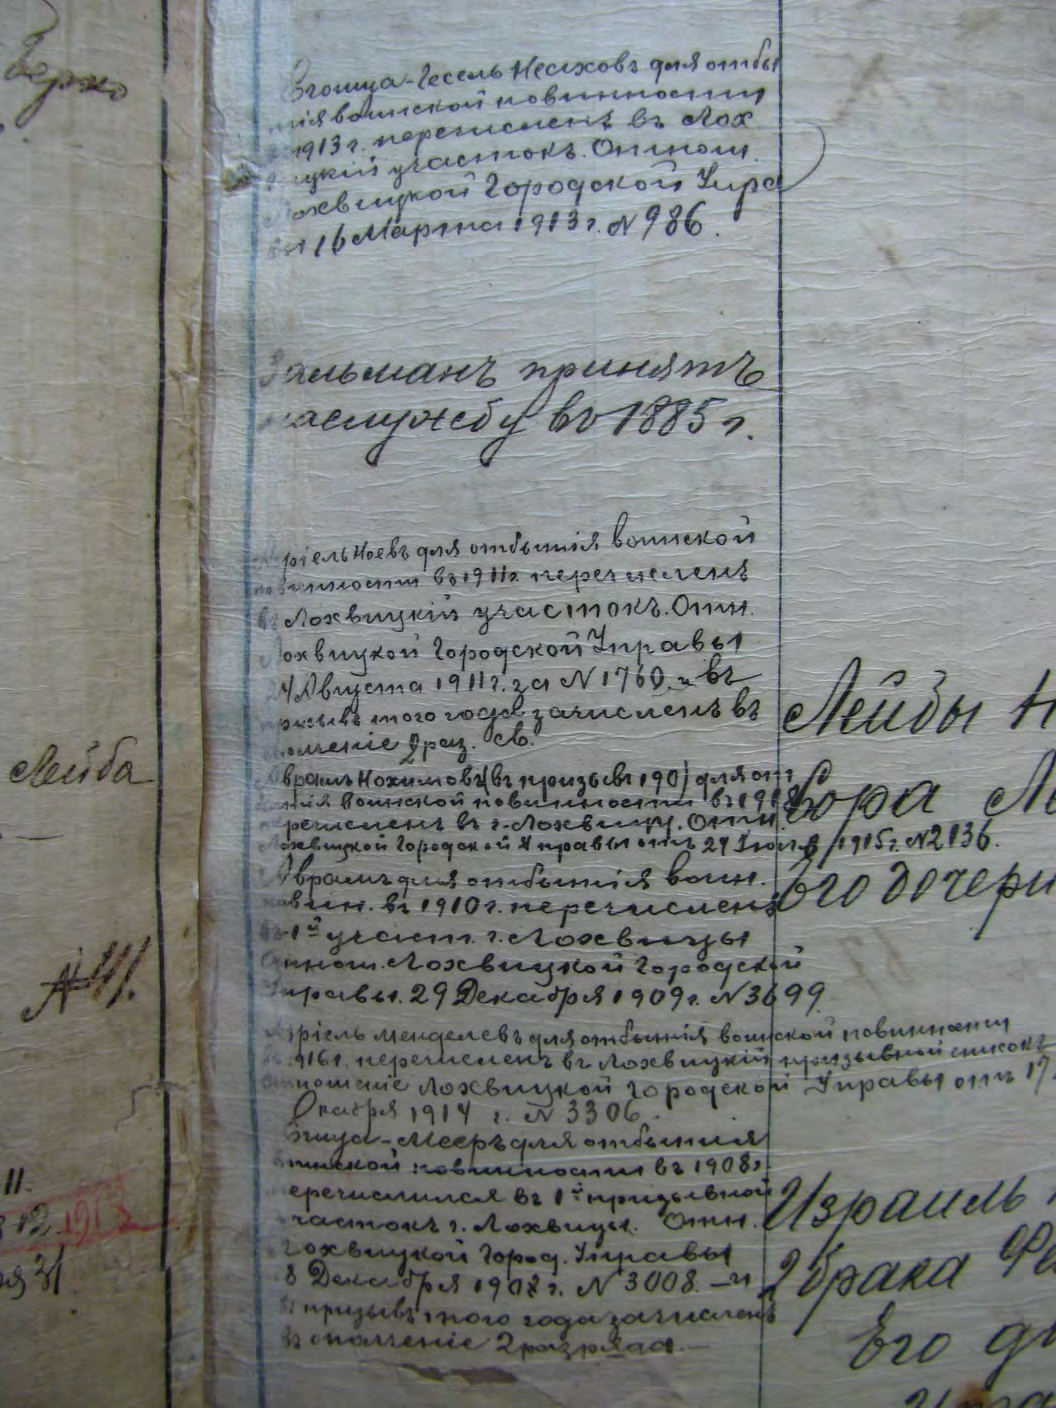 для отбы
тія воинской повинности
1913 г. перечисленъ въ Лох
вицкій участокъ. Отнош.
Лохвицкой Городской Упра
вы 16 Марта 1913 г. № 986.
Зальманъ принятъ
на службу въ 1885 г.
Ноевъ для отбытія воинской
повинности въ 1911 г. перечисленъ
въ Лохвицкій участокъ. Отн.
Лохвицкой Городской Управы
Августа 1911 г. за № 1760 и въ
призывъ того года зачисленъ въ
ополченіе 2 раз.
Лейба
Лейбы
Аврамъ Нохимовъ (въ призывъ 190) для от
бытія воинской повинности въ
перечисленъ въ г. Лохвицу. Отн.
Лохвицкой Городской Управы отъ 1915 г. № 2136.
Его дочери
Аврамъ для отбытія воин.
повин. въ 1910 г. перечисленъ
въ 1й участ. г. Лохвицы
Отнош. Лохвицкой Городской
Управы. 29 Декабря 1909 г. № 3699
Азріель Менделевъ для отбытія воинской повинности
въ 1916 г. перечисленъ въ Лохвицкій призывной списокъ
Отношеніе Лохвицкой Городской Управы отъ 17
1914 г. № 3306.
для отбытия
воинской повинности въ 1908 г.
перечислился въ 1й призывной
участокъ г. Лохвицы. Отн.
Лохвицкой Город. Управы
8 Декабря г. № 3008 — и
въ призывъ того года зачисленъ
въ ополченіе 2 разряда. —
Израиль
2 брака
Его
11.
31